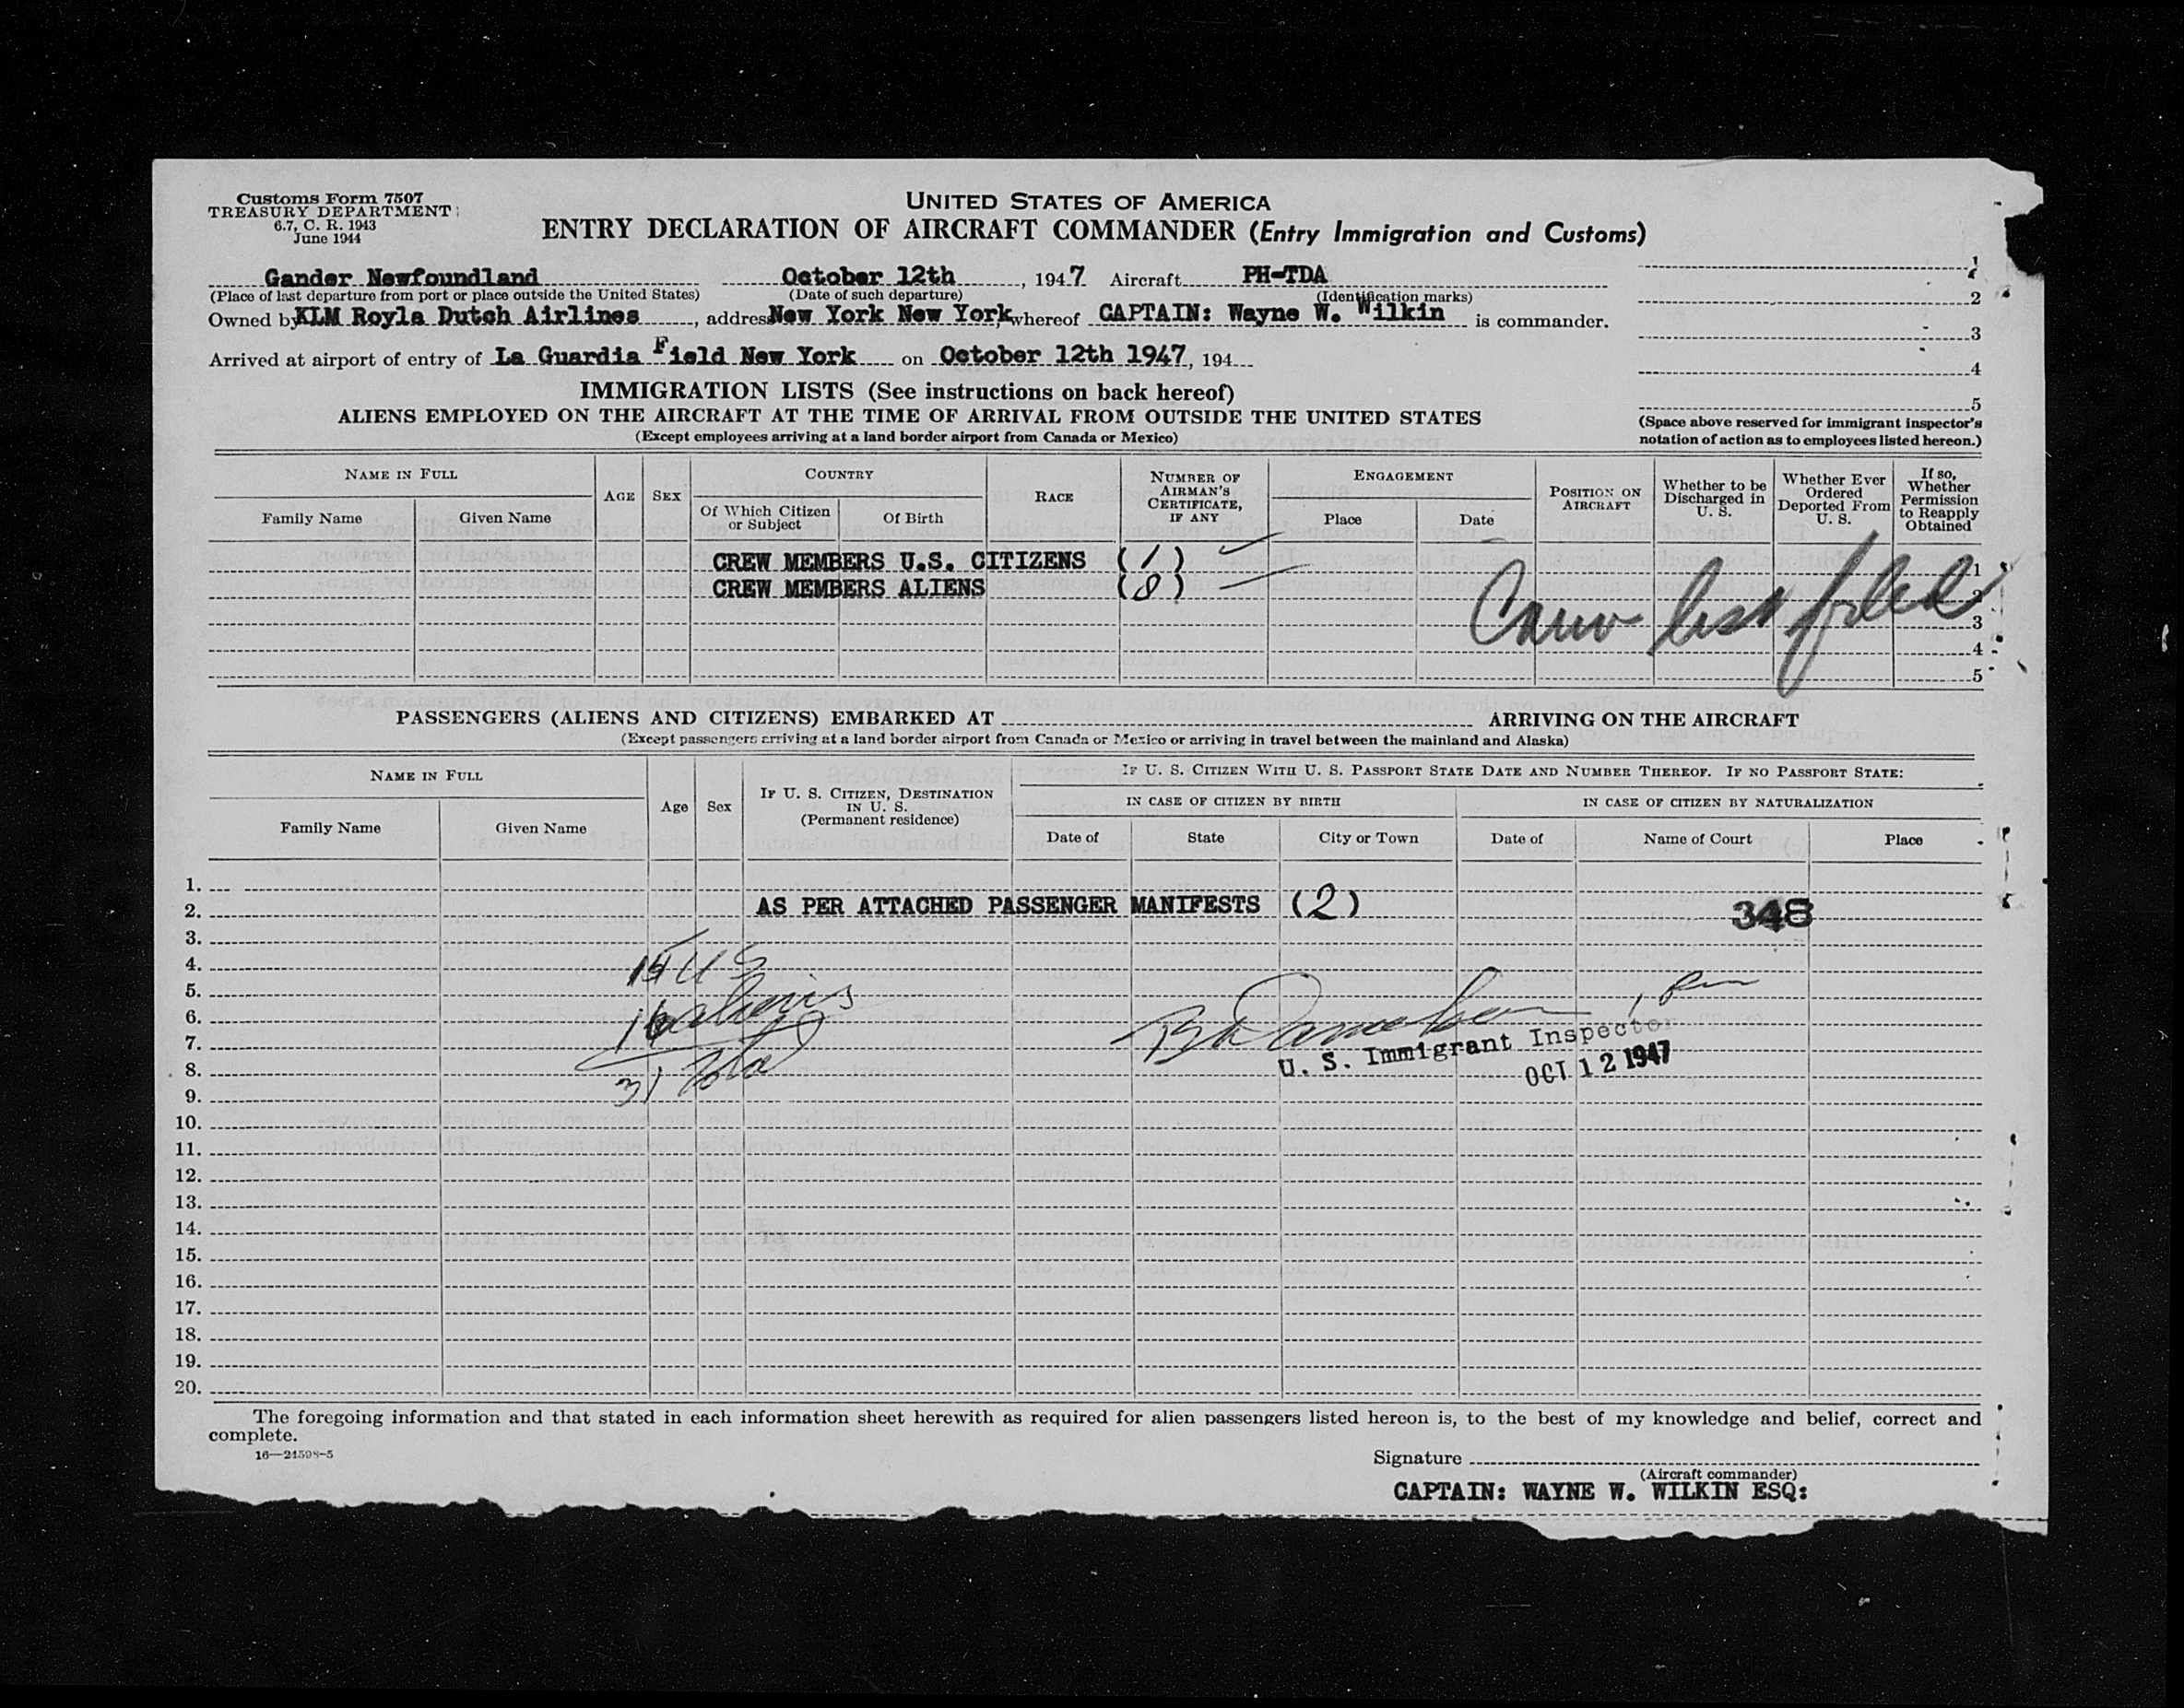 Customs Form 7507
TREASURY DEPARTMENT
6.7, C. R. 1943
June 1944
UNITED STATES OF AMERICA
ENTRY DECLARATION OF AIRCRAFT COMMANDER (Entry Immigration and Customs)
Gander Newfoundland October 12th, 1947 Aircraft PH-TDA
(Place of last departure from port or place outside the United States) (Date of such departure) (Identification marks)
Owned by KLM Royla Dutch Airlines, address New York New York whereof CAPTAIN: Wayne W. Wilkin is commander.
Arrived at airport of entry of La Guardia Field New York on October 12th 1947, 194
1
2
3
4
5
(Space above reserved for immigrant inspector's notation of action as to employees listed hereon.)
IMMIGRATION LISTS (See instructions on back hereof)
ALIENS EMPLOYED ON THE AIRCRAFT AT THE TIME OF ARRIVAL FROM OUTSIDE THE UNITED STATES
(Except employees arriving at a land border airport from Canada or Mexico)
NAME IN FULL
Family Name Given Name
AGE SEX
COUNTRY
Of Which Citizen or Subject Of Birth
RACE
NUMBER OF AIRMAN'S CERTIFICATE, IF ANY
ENGAGEMENT
Place Date
POSITION ON AIRCRAFT
Whether to be Discharged in U. S.
Whether Ever Ordered Deported From U. S.
If so, Whether Permission to Reapply Obtained
CREW MEMBERS U.S. CITIZENS (1) 1
CREW MEMBERS ALIENS (8) 2
Crew list filed
3
4
5
PASSENGERS (ALIENS AND CITIZENS) EMBARKED AT ARRIVING ON THE AIRCRAFT
(Except passengers arriving at a land border airport from Canada or Mexico or arriving in travel between the mainland and Alaska)
NAME IN FULL
Family Name Given Name
Age Sex
IF U. S. CITIZEN, DESTINATION IN U. S.
(Permanent residence)
IF U. S. CITIZEN WITH U. S. PASSPORT STATE DATE AND NUMBER THEREOF. IF NO PASSPORT STATE:
IN CASE OF CITIZEN BY BIRTH IN CASE OF CITIZEN BY NATURALIZATION
Date of State City or Town Date of Name of Court Place
1.
2. AS PER ATTACHED PASSENGER MANIFESTS (2) 348
3.
4. 15 US
5.
6. 16 aliens
7.
8. 31 Total
U. S. Immigrant Inspector
OCT 12 1947
9.
10.
11.
12.
13.
14.
15.
16.
17.
18.
19.
20.
The foregoing information and that stated in each information sheet herewith as required for alien passengers listed hereon is, to the best of my knowledge and belief, correct and
complete.
16—21598-5
Signature
(Aircraft commander)
CAPTAIN: WAYNE W. WILKIN ESQ: